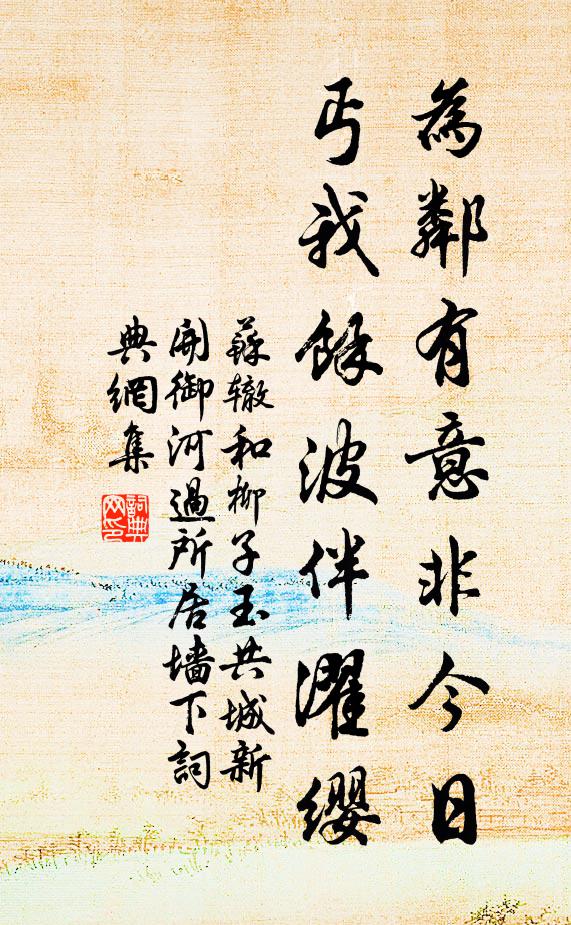 為鄰有意非今日
丐我餘波伴濯纓
蘇轍和柳子玉共城新
開御河過所居墻下詞
典網集
詞典網印